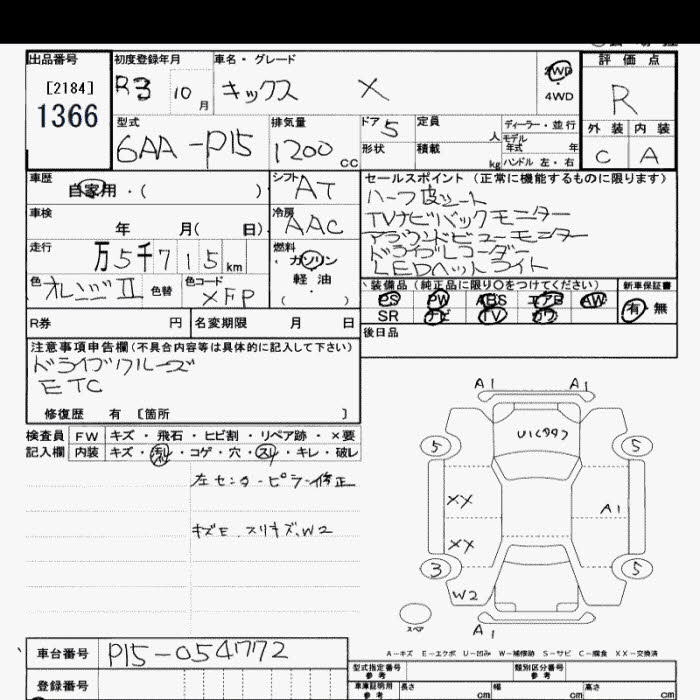 出品番号 初度登録年月 車名・グレード 評価点
[2184]
1366
R3 10月 キックス X
2WD
4WD
R
型式 排気量 ドア 5 定員 人 ディーラー・並行
モデル年式 年
外装 内装
6AA-P15 1200cc 形状 積載 kg ハンドル 左・右
C A
車歴 自家用・( ) シフト AT
セールスポイント (正常に機能するものに限ります)
ハーフ皮シート
TVナビバックモニター
アラウンドビューモニター
ドライブレコーダー
LEDヘットライト
車検 年 月( 日) 冷房 AAC
走行 万5千715km 燃料 ガソリン
軽油
( )
色 オレンジII 色替 色コード XFP
装備品 (純正品に限り○をつけてください) 新車保証書
PS PW ABS エアB AW 有 無
SR ナビ TV カワ
R券 円 名変期限 月 日
後日品
注意事項申告欄(不具合内容等は具体的に記入して下さい)
ドライブクルーズ
ETC
修復歴 有 [箇所 ]
検査員 FW キズ・飛石・ヒビ割・リペア跡・×要
記入欄 内装 キズ・汚レ・コゲ・穴・スレ・キレ・破レ
左センターピラー修正
キズE.スリキズ、W2
A1 A1
5 5
XX A1
XX
3 5
W2
スペア A1
A-キズ E-エクボ U-凹み W-補修跡 S-サビ C-腐食 XX-交換済
車台番号 P15-054772
登録番号
型式指定番号 参考 類別区分番号 参考
車庫証明用 参考 長さ cm 幅 cm 高さ cm